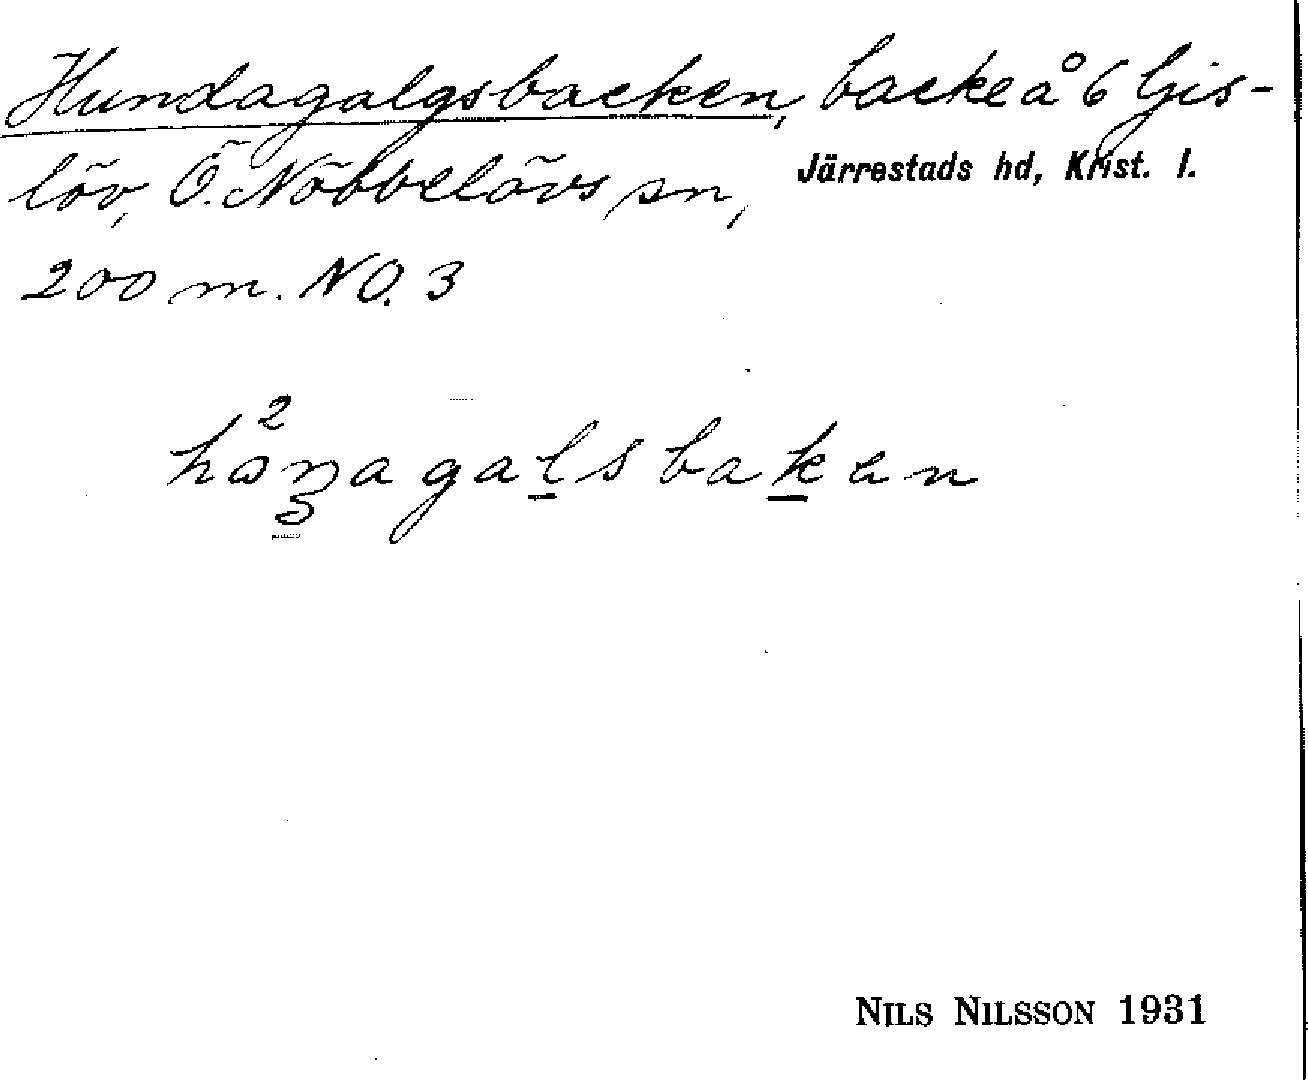 Hundagalgsbacken, backe å 6 Gis-
löv, Ö. Nöbbelövs sn,
Järrestads hd, Krist. l.
200 m. NO. 3
2
hɷnagalsbakan
NILS NILSSON 1931